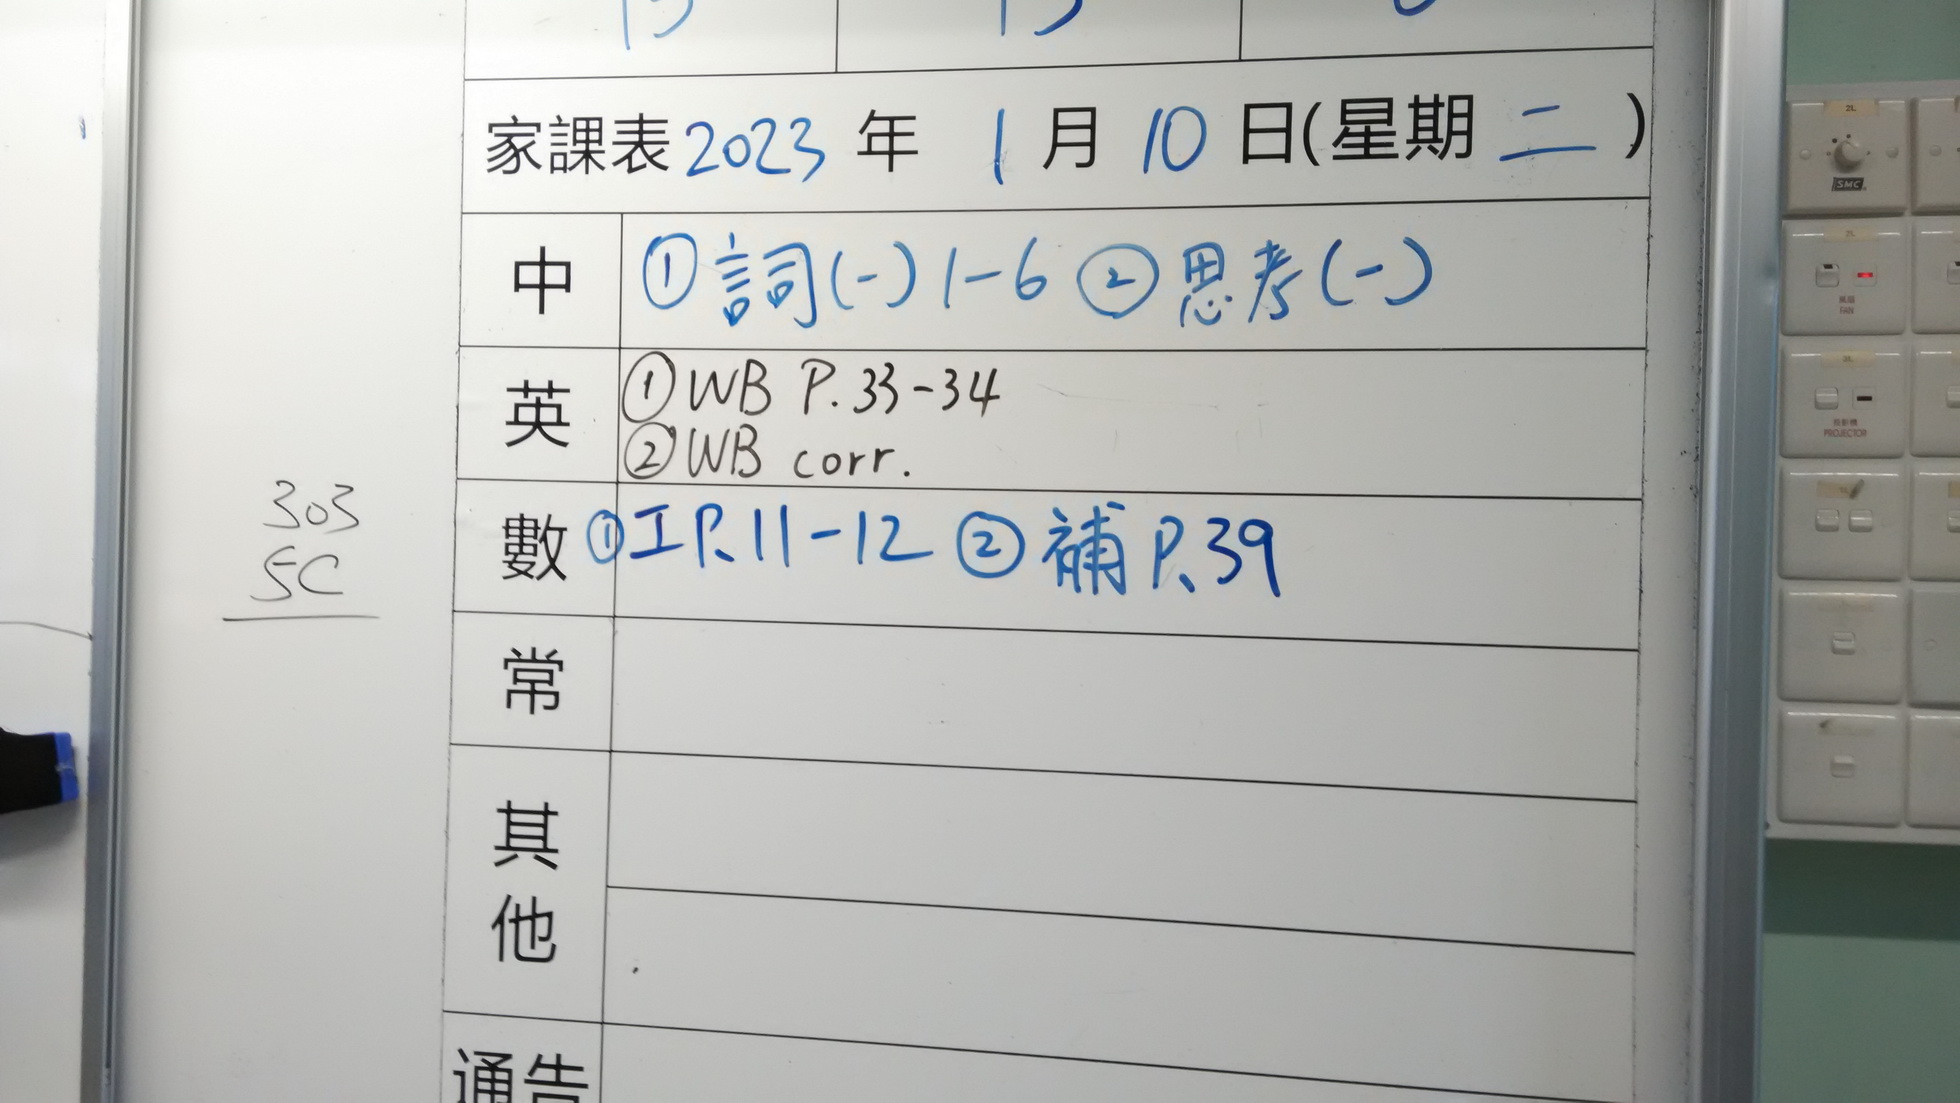 家課表 2023 年 1 月 10 日(星期 二 )
中 ① 詞(一) 1-6 ② 思考(一)
英 ① WB P.33-34
② WB corr.
數 ① 工 P.11-12 ② 補 P.39
常
其他
通告
303
5C
2L
SMC
2L
風扇
FAN
投射機
PROJECTOR